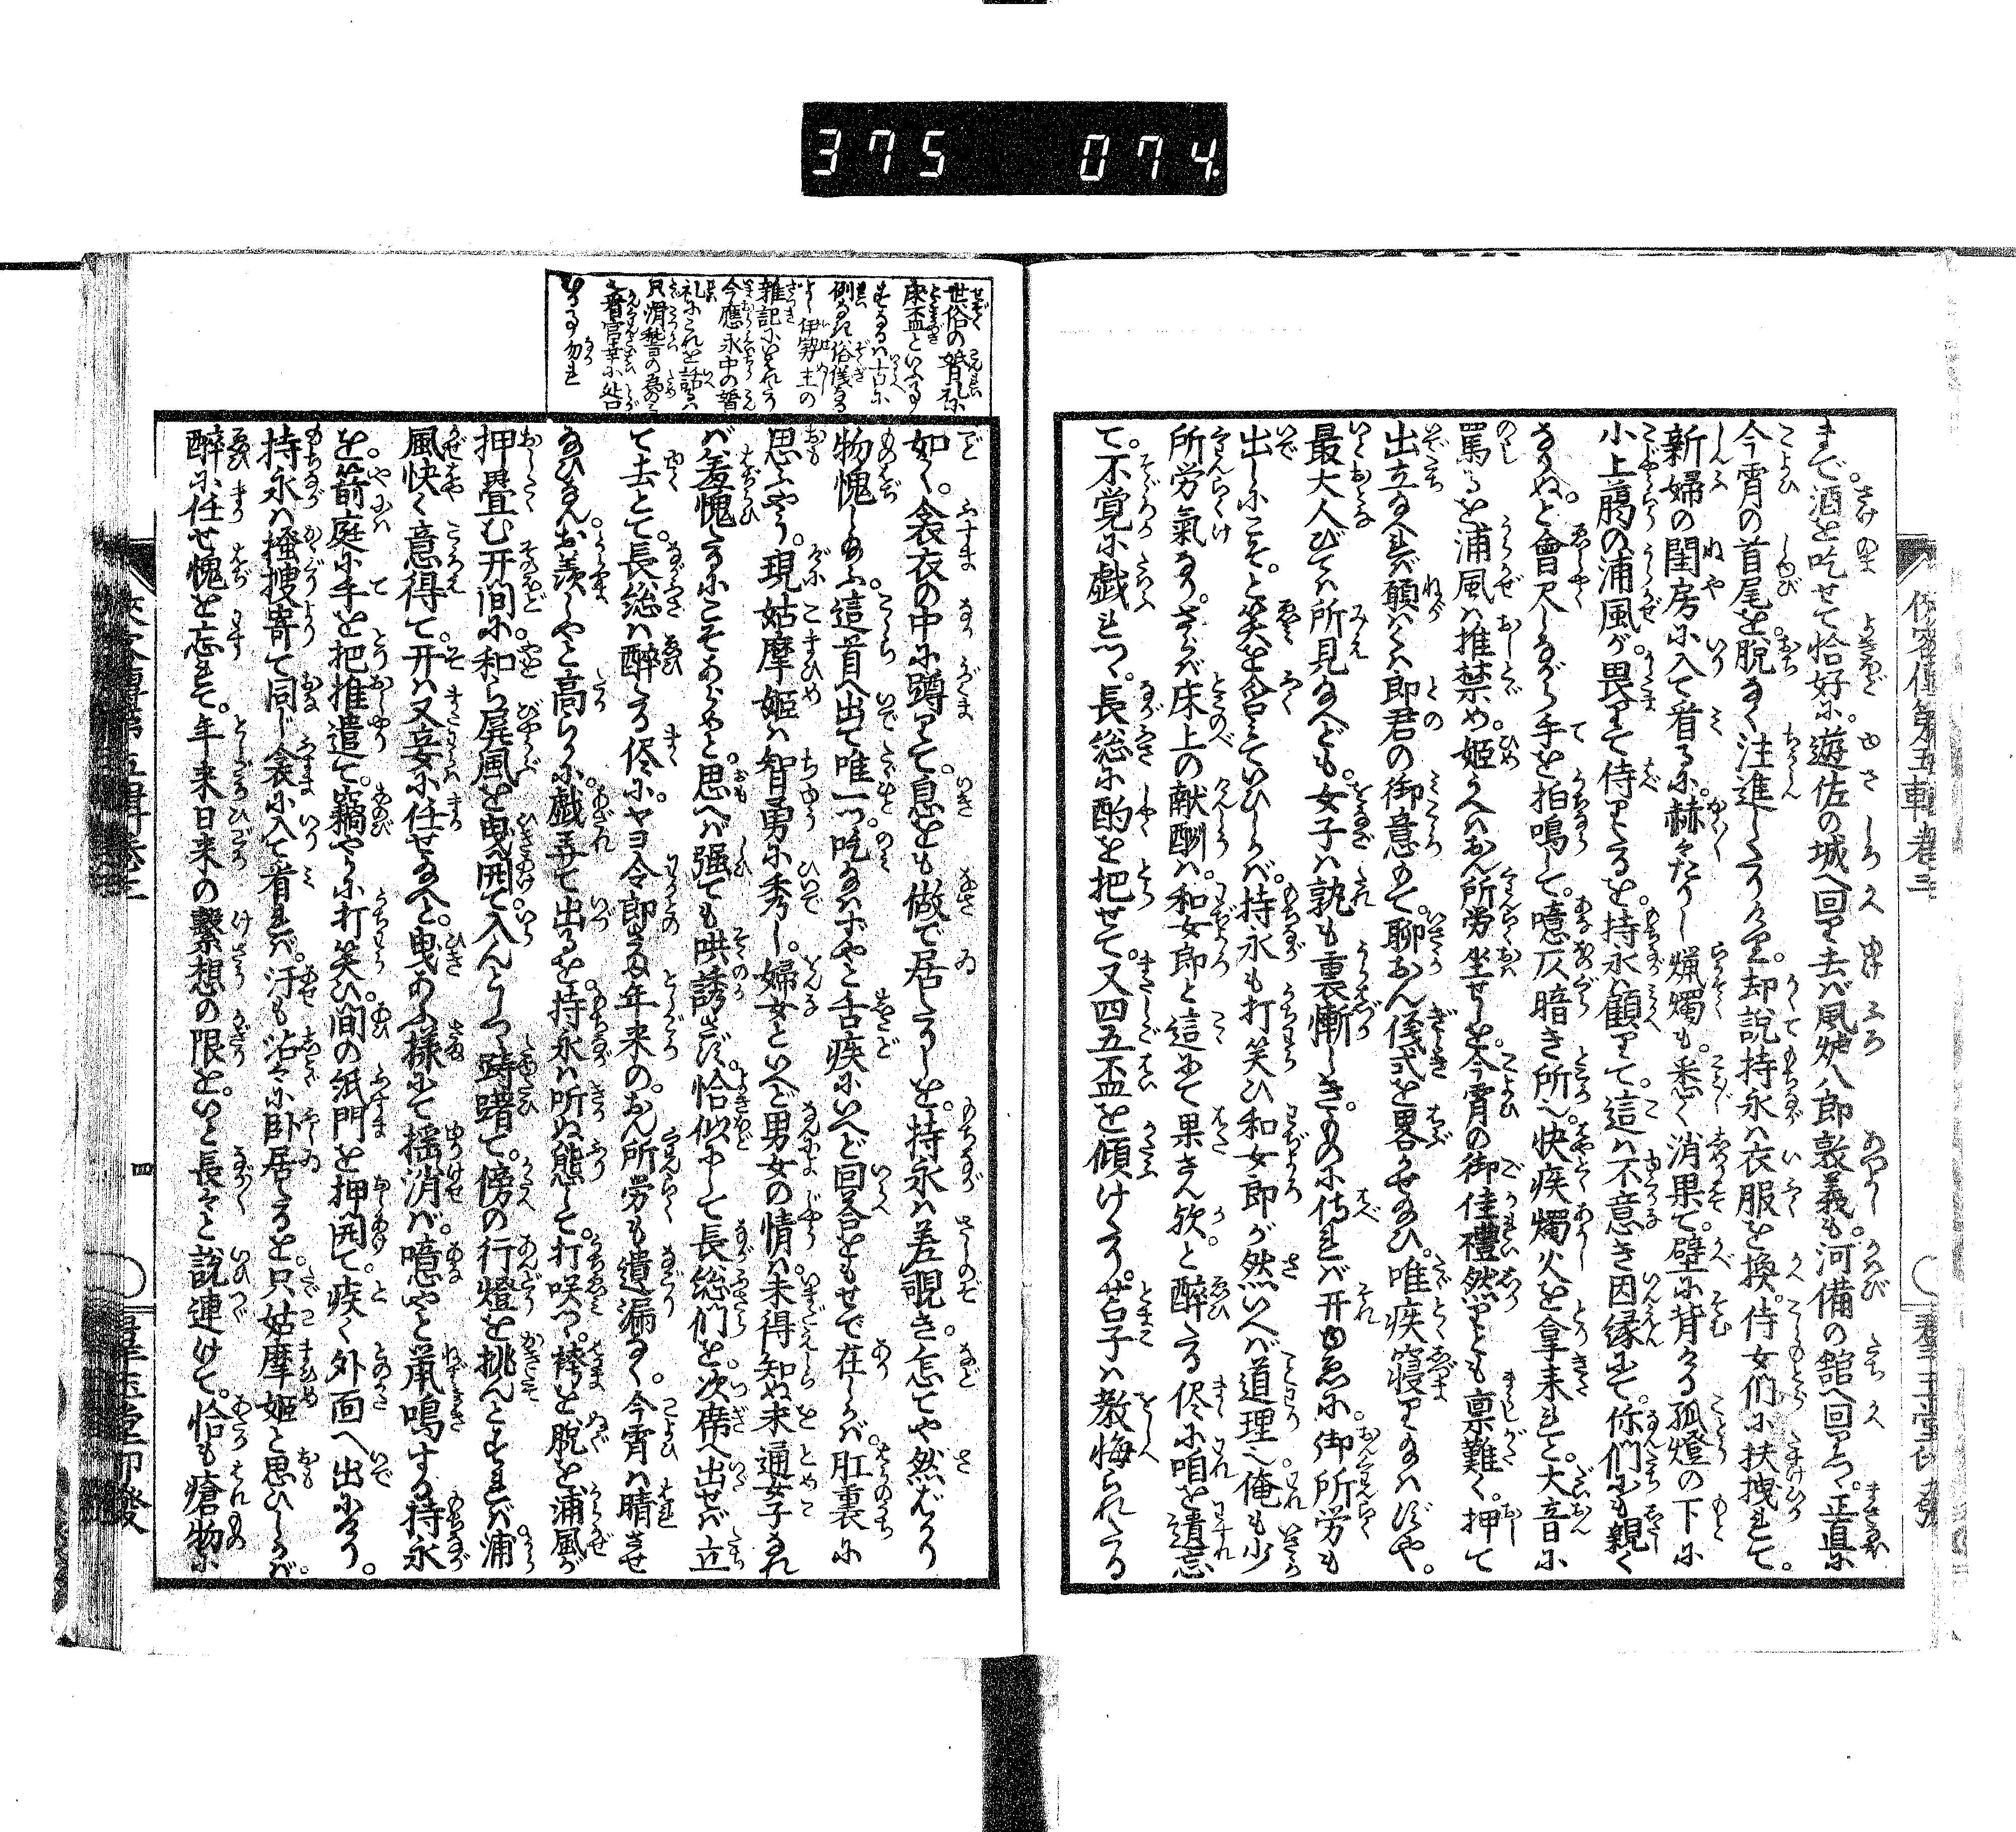 375 074
俠客傳第五輯卷三
まで。酒を吃せて恰好に。遊佐の城へ回り去ば風炉八郎敦義も。河備の館へ回りつ。正直に
今宵の首尾を。脱なく注進したりける。却說持永ハ衣服を換。侍女們に扶掖れて。
新婦の閨房に入て看るに。赫々たりし蝋燭も。悉く消果て。壁に背ける孤燈の下に
小上﨟の浦風が。畏りて侍りたるを。持永ハ顧りて。這ハ不意き因縁にて。你們にも親く
なりぬと會尺しながら手を拍鳴して。噫仄暗き所へ。快疾燭火を拿来れと。大音に
罵るを浦風ハ推禁め。姬うへハおん所労坐せしを。今宵の御佳禮然りとも禀難く。押て
出立なへれバ願くハ郎君の御意もて。聊おん儀式を畧かせなひ。唯疾寝りなハずや。
最大人びてハ所見なへども。女子ハ孰も裏慚しき。ものに侍れバ开ゆゑに。御所労も
出しにこそ。と笑を含ていひしかバ。持永も打笑ひ和女郎が然いへバ道理之俺も少
所労氣なり。さらバ床上の献酬ハ。和女郎と這にて果さん欤。と醉たる侭に咱を遺忘
て。不覚に戯れつゝ。長総に酌を把せて。又四五盃を傾けたり。苫子ハ教悔られたる
世俗の婚礼に
床盃といふ事
をするハ古に
例なき俗儀なる
よし伊勢主の
雜記にいはれたり
今應永中の婚
礼にこれを話るハ
只滑稽の為のミ
看官幸に咎
むる事勿れ
如く。衾衣の中に蹲りて。息をも做で居たりしを。持永ハ差覗き。怎てや然ばかり
物愧しなふ。這首へ出て唯一つ。吃なハずやと舌疾にいへど回答ともせで在しかバ。肛裏に
思ふやう。現姑摩姬ハ智勇に秀し。婦女といへど男女の情ハ。未得知ぬ未通女子なれ
バ羞愧るにこそあらめと。思へバ强ても哄誘さず。恰似にして長総們を。次席へ出せバ立
て去とて。長総ハ醉たる侭に。ヤヨ令郎なふ年来の。おん所労も遺漏なく。今宵ハ晴させ
なひなん。お羨しやと高らかに。戯弄て出るを。持永ハ所ぬ態して。打咲つゝ。袴を脫を浦風が
押畳む开間に。和ら屏風を曳開て。入んとしつゝ踌躇て。傍の行燈を挑んとすれバ浦
風快く意得て。开ハ又妾に任せなへと。曳あふ様にて揺消バ。噫やと鼡鳴する持永
を。箭庭に手を把推遣て。竊やかに打笑ひ。間の紙門を押開て。疾く外面へ出にけり。
持永ハ掻搜寄て同じ衾に入て看れバ。汗も沾々に卧居たるを。只姑摩姬と思ひしかバ。
醉に任せ愧を忘れて。年来日来の繫想の限と。いと長々と說連けて。恰も瘡物に
四